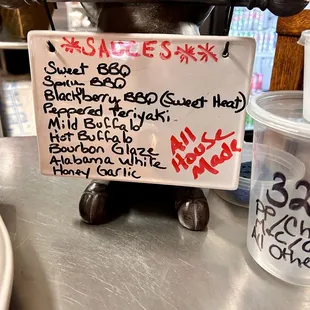 *SAUCES**
Sweet BBQ
Spicy BBQ
Blackberry BBQ (Sweet Heat)
Peppered Teriyaki
Mild Buffalo
Hot Buffalo
Bourbon Glaze
Alabama White
Honey Garlic
All
House
Made
32
All Othe